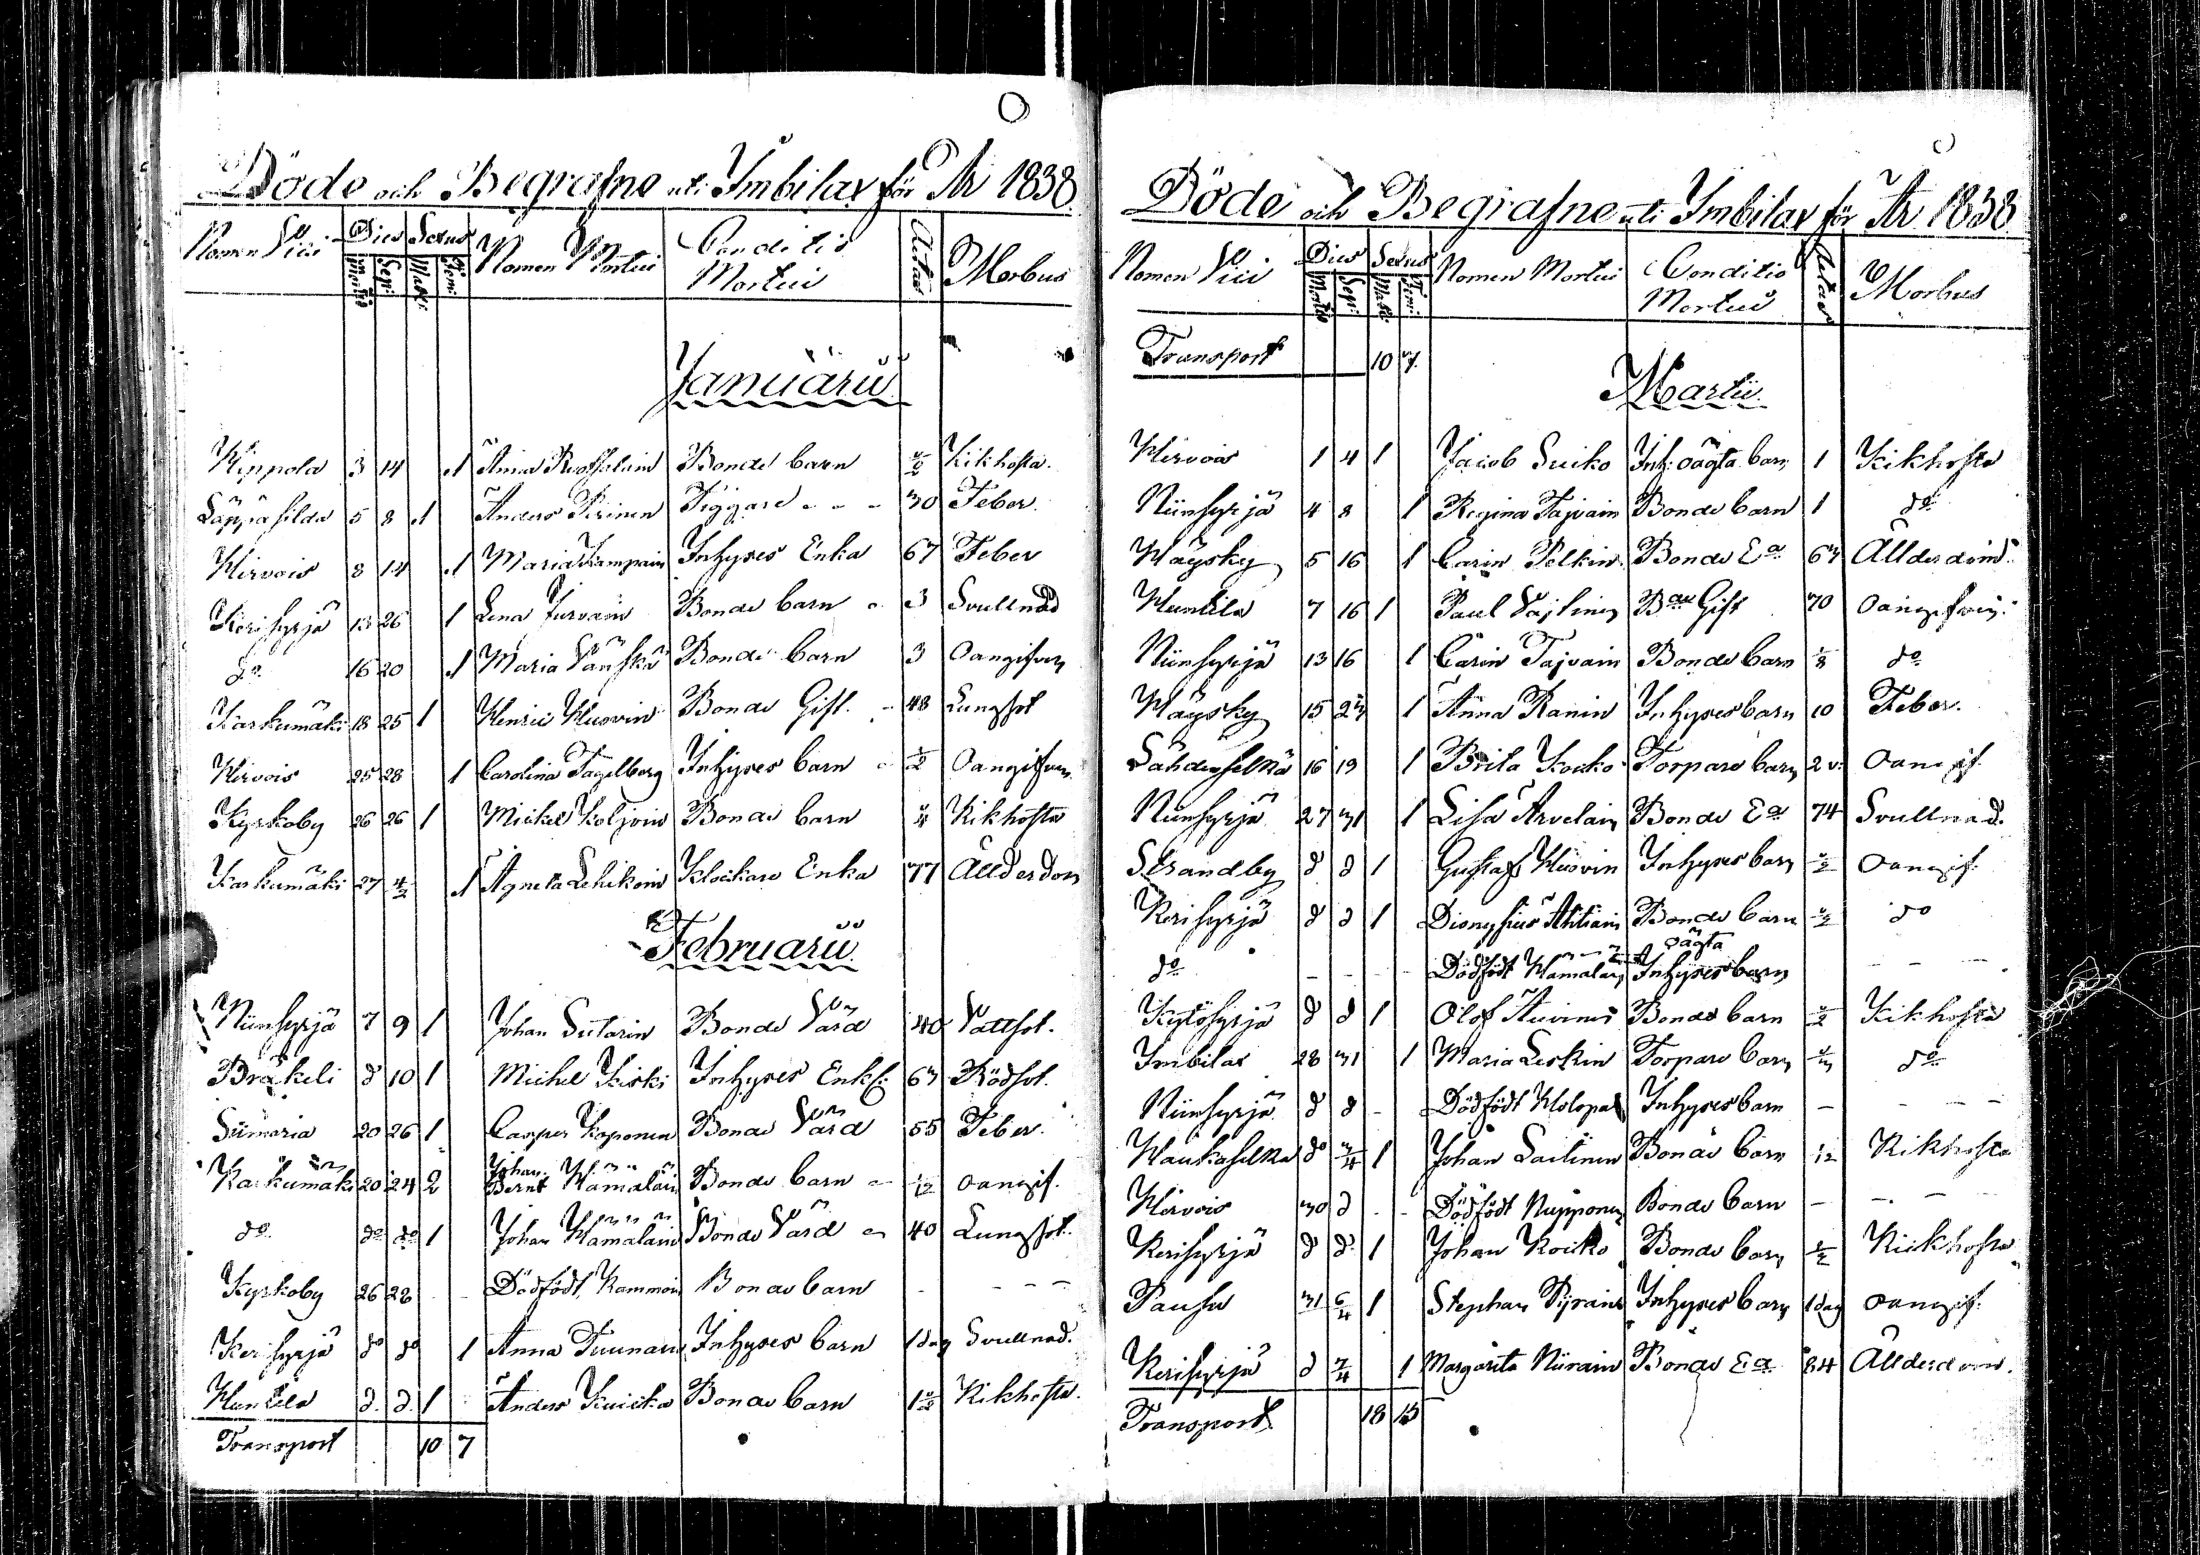 Döde och Begrafne uti Imbilax för År 1838
Nomen Vici Dies Sexus Nomen Mortui Conditio Mortui Ætas Morbus
Mortis Sep: Mask: Fem:
Januarii
Kippola 3 14 1 Anna Bonde barn ½ Kikhosta.
5 8 1 Anders Pirinen Tiggare - - - 30 Feber.
Hirvois 8 14 1 Maria Kampain Inhyses Enka 67 Feber
Kerisyrjä 13 26 1 Lena Turvain Bonde barn 3 Svullnad
do 16 20 1 Maria Vänskä Bonde barn 3 Oangifven
Karkumäki 18 25 1 Henric Husvin Bonde Gift. 48 Lungsot
Hirvois 25 28 1 Carolina Fagelberg Inhyses barn ½ Oangifven
Kyrkoby 26 26 1 Mickel Koljoin Bonde barn ¼ Kikhosta
Karkumäki 27 4/2 1 Agneta Lehikoin Klockare Enka 77 Ållderdom
Februarii
Niinsyrjä 7 9 1 Johan Sutarin Bonde Värd 40 Vattsot.
Bräkeli d 10 1 Michel Kiski Inhyses Enkl: 63 Rödsot.
Siimaria 20 26 1 Casper Koponen Bonde Värd 55 Feber.
Karkumäki 20 24 2 Johan Bernt Hämäläin Bonde barn 1/12 oangif.
do do do 1 Johan Hämäläin Bonde Värd 40 Lungsot.
Kyrkoby 26 28 - - Dödfödt Kammoin Bonde barn - - - -
Kerisyrjä do do 1 Anna Tuunain Inhyses barn 1 dag Svullnad.
Huntila d. d. 1 Anders Kuicka Bonde barn 1½ Kikhosta.
Transport 10 7
Döde och Begrafne uti Imbilax för År 1838
Nomen Vici Dies Sexus Nomen Mortui Conditio Mortui Ætas Morbus
Mortis Sep: Mask: Fem:
Transport 10 7.
Martii.
Hirvois 1 4 1 Jacob Suiko Inh: oägta barn 1 Kikhosta
Niinsyrjä 4 8 1 Regina Tajvain Bonde barn 1 do
Häysky 5 16 1 Carin Pelkin Bonde Ea 63 Ållderdom.
Huntila 7 16 1 Paul Gift 70 oangifven.
Niinsyrjä 13 16 1 Carin Tajvain Bonde barn ⅛ do
Häysky 15 23 1 Anna Ranin Inhyses barn 10 Feber.
Lähdeselkä 16 19 1 Brita Kocko Torpare barn 2 v. oangif.
Niinsyrjä 27 31 1 Lisa Arvelain Bonde Ea 74 Svullnad.
Strandby d d 1 Gustaf Husvin Inhyses barn ½ oangif.
Kerisyrjä d d 1 Dionysius Ahtiain Bonde barn ½ do
do - - - - Dödfödt Hämäläin oägta Inhyses barn - - -
Kytösyrjä d d 1 Olof Auvinen Bonde barn ½ Kikhosta
Imbilax 28 31 1 Maria Leskin Torpare barn ⅓ do
Niinsyrjä d d - Dödfödt Holopai Inhyses barn - - - -
Haukaselkä do 3/4 1 Johan Laitinen Bonde barn 1/12 Kikhosta
Hirvois 30 d - - Dödfödt Nupponen Bonde barn - - - -
Kerisyrjä d d 1 Johan Kocko Bonde barn ½ Kikhosta
Pausu 31 6/4 1 Stephan Pyrain Inhyses barn 1 dag oangif.
Kerisyrjä d 7/4 1 Margarita Niirain Bonde Ea 84 Ållderdom.
Transport 18 15